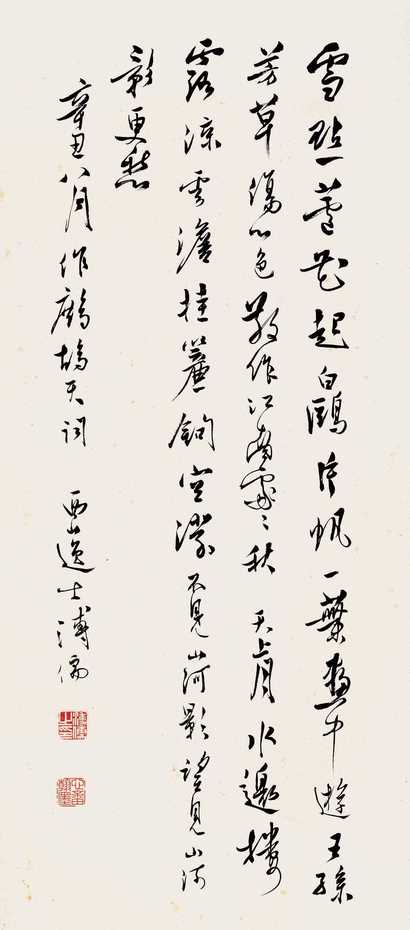 雪點蘆花起白鷗片帆一葉畫中遊王孫
芳草傷心色散作江南處〻秋 天上月水邊樓
露涼雲澹挂簾鉤空濛不見山河影望見山河
影更愁
辛丑八月作鷓鴣天詞 西山逸士溥儒